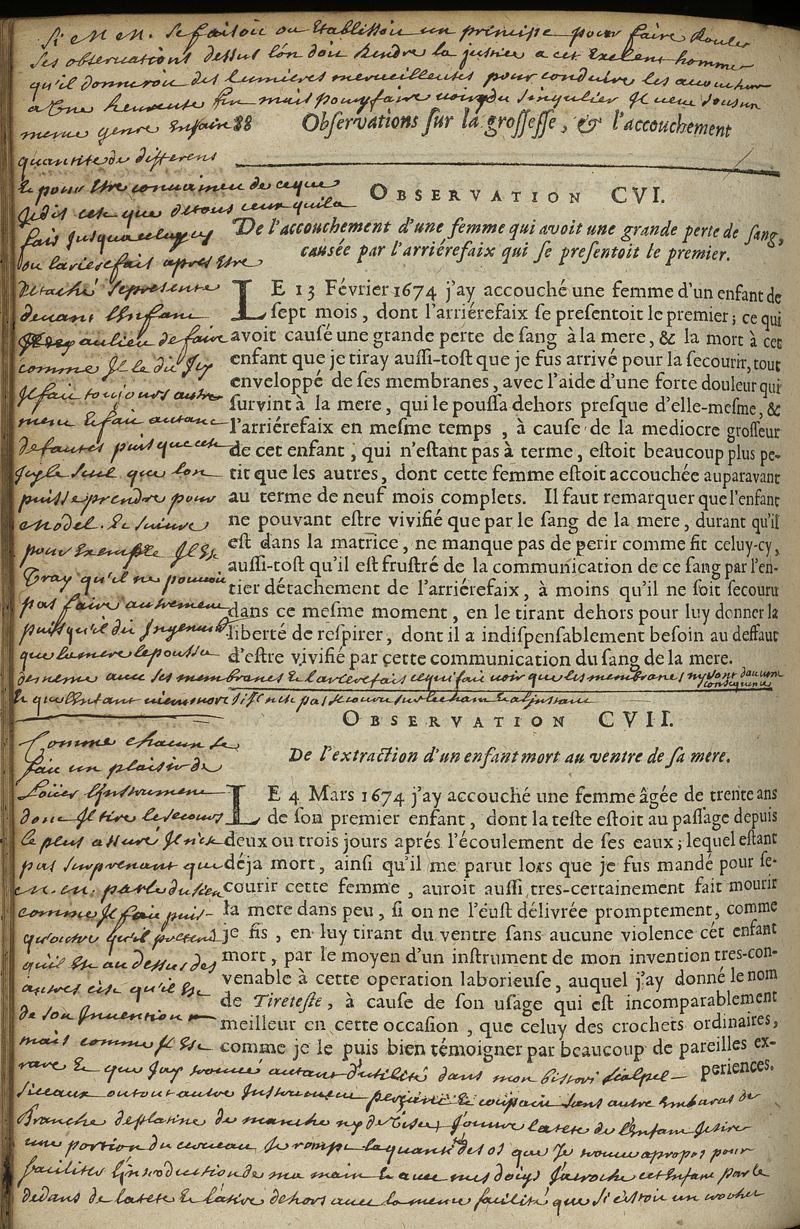 Si M. M. se faisoit ou Etablissoit un principe pour faire Rouler
ses observations dessus l'on doit Rendre la justice a cet Exelent homme
qu'il donneroit des lumieres merveilleuses pour conduire les
a Une heureuse fin mais pour y faire voir du singulier Je veux sous un
meme genre Enfaire
quantité de differens
88 Observations sur la grossesse, & l'accouchement
Et pour Etre convaincu de ce que
Je dis cest que de tous ceux qu'il a
fais jusqua celuy cy
ou larierefais apres Etre
Detaché se presente
devant l'enfant
au lieu de faire
comme Il le dit Icy
Il fait toujours autre
ment Et fait autant
de fautes puis que cet
Icy le seul que lon
puisse prendre pour
Model. Et suivre
pour Exemple Il Est
Vray qu'il ne pouvoit
pas faire autrement
puisqu'il dit
que la mere le poussa
OBSERVATION CVI.
De l'accouchement d'une femme qui avoit une grande perte de sang,
causée par l'arriérefaix qui se presentoit le premier.
LE 13 Février 1674 j'ay accouché une femme d'un enfant de
sept mois, dont l'arriérefaix se presentoit le premier; ce qui
avoit causé une grande perte de sang à la mere, & la mort à cet
enfant que je tiray aussi-tost que je fus arrivé pour la secourir, tout
enveloppé de ses membranes, avec l'aide d'une forte douleur qui
survint à la mere, qui le poussa dehors presque d'elle-mesme, &
l'arriérefaix en mesme temps, à cause de la mediocre grosseur
de cet enfant, qui n'estant pas à terme, estoit beaucoup plus pe-
tit que les autres, dont cette femme estoit accouchée auparavant
au terme de neuf mois complets. Il faut remarquer que l'enfant
ne pouvant estre vivifié que par le sang de la mere, durant qu'il
est dans la matrice, ne manque pas de perir comme fit celuy-cy,
aussi-tost qu'il est frustré de la communication de ce sang par l'en-
tier détachement de l'arriérefaix, à moins qu'il ne soit secouru
dans ce mesme moment, en le tirant dehors pour luy donner la
liberté de respirer, dont il a indispensablement besoin au deffaut
d'estre vivifié par cette communication du sang de la mere.
avec ses membranes Et larierefais ce qui fait voir que les membranes
Et que l'Enfant meurt si n'est pas secouru sur le cham Et a l'instant
Comme chacun se
fait un plaisir de
Loüer l'instrument
dont Il tire le secours
le plus assuré Il n'est
pas surprenant que
M. M. parle du sien
comme Il fait puis-
qu'outre qu'il pretend
qu'il Est au dessus des
autres c'est qu'il Est
de son Invention
mais comme Il Est
OBSERVATION CVII.
De l'extraction d'un enfant mort au ventre de sa mere.
LE 4 Mars 1674 j'ay accouché une femme âgée de trente ans
de son premier enfant, dont la teste estoit au passage depuis
deux ou trois jours aprés l'écoulement de ses eaux; lequel estant
déja mort, ainsi qu'il me parut lors que je fus mandé pour se-
courir cette femme, auroit aussi tres-certainement fait mourir
la mere dans peu, si on ne l'eust délivrée promptement, comme
je fis, en luy tirant du ventre sans aucune violence cét enfant
mort, par le moyen d'un instrument de mon invention tres-con-
venable à cette operation laborieuse, auquel j'ay donné le nom
de Tireteste, à cause de son usage qui est incomparablement
meilleur en cette occasion, que celuy des crochets ordinaires,
comme je le puis bien témoigner par beaucoup de pareilles ex-
periences.
rare Et que Jay trouvé autant d'utilité dans mon bistori scalpel
siceaux ou tout autre Instrument Et coupant sans autre Embaras de
Branche de platine de manche ny de Jouvre la tete de l'Enfant Je tire
une portion du cerveau Je romps la quantité des os que Je trouve apropos pour
faciliter l'introduction de ma main Et avec mes doigs Jaroche cet Enfant par le
dedans de la tete Et l'atire dehors avec la meme facilité que si c'estoit un crochet